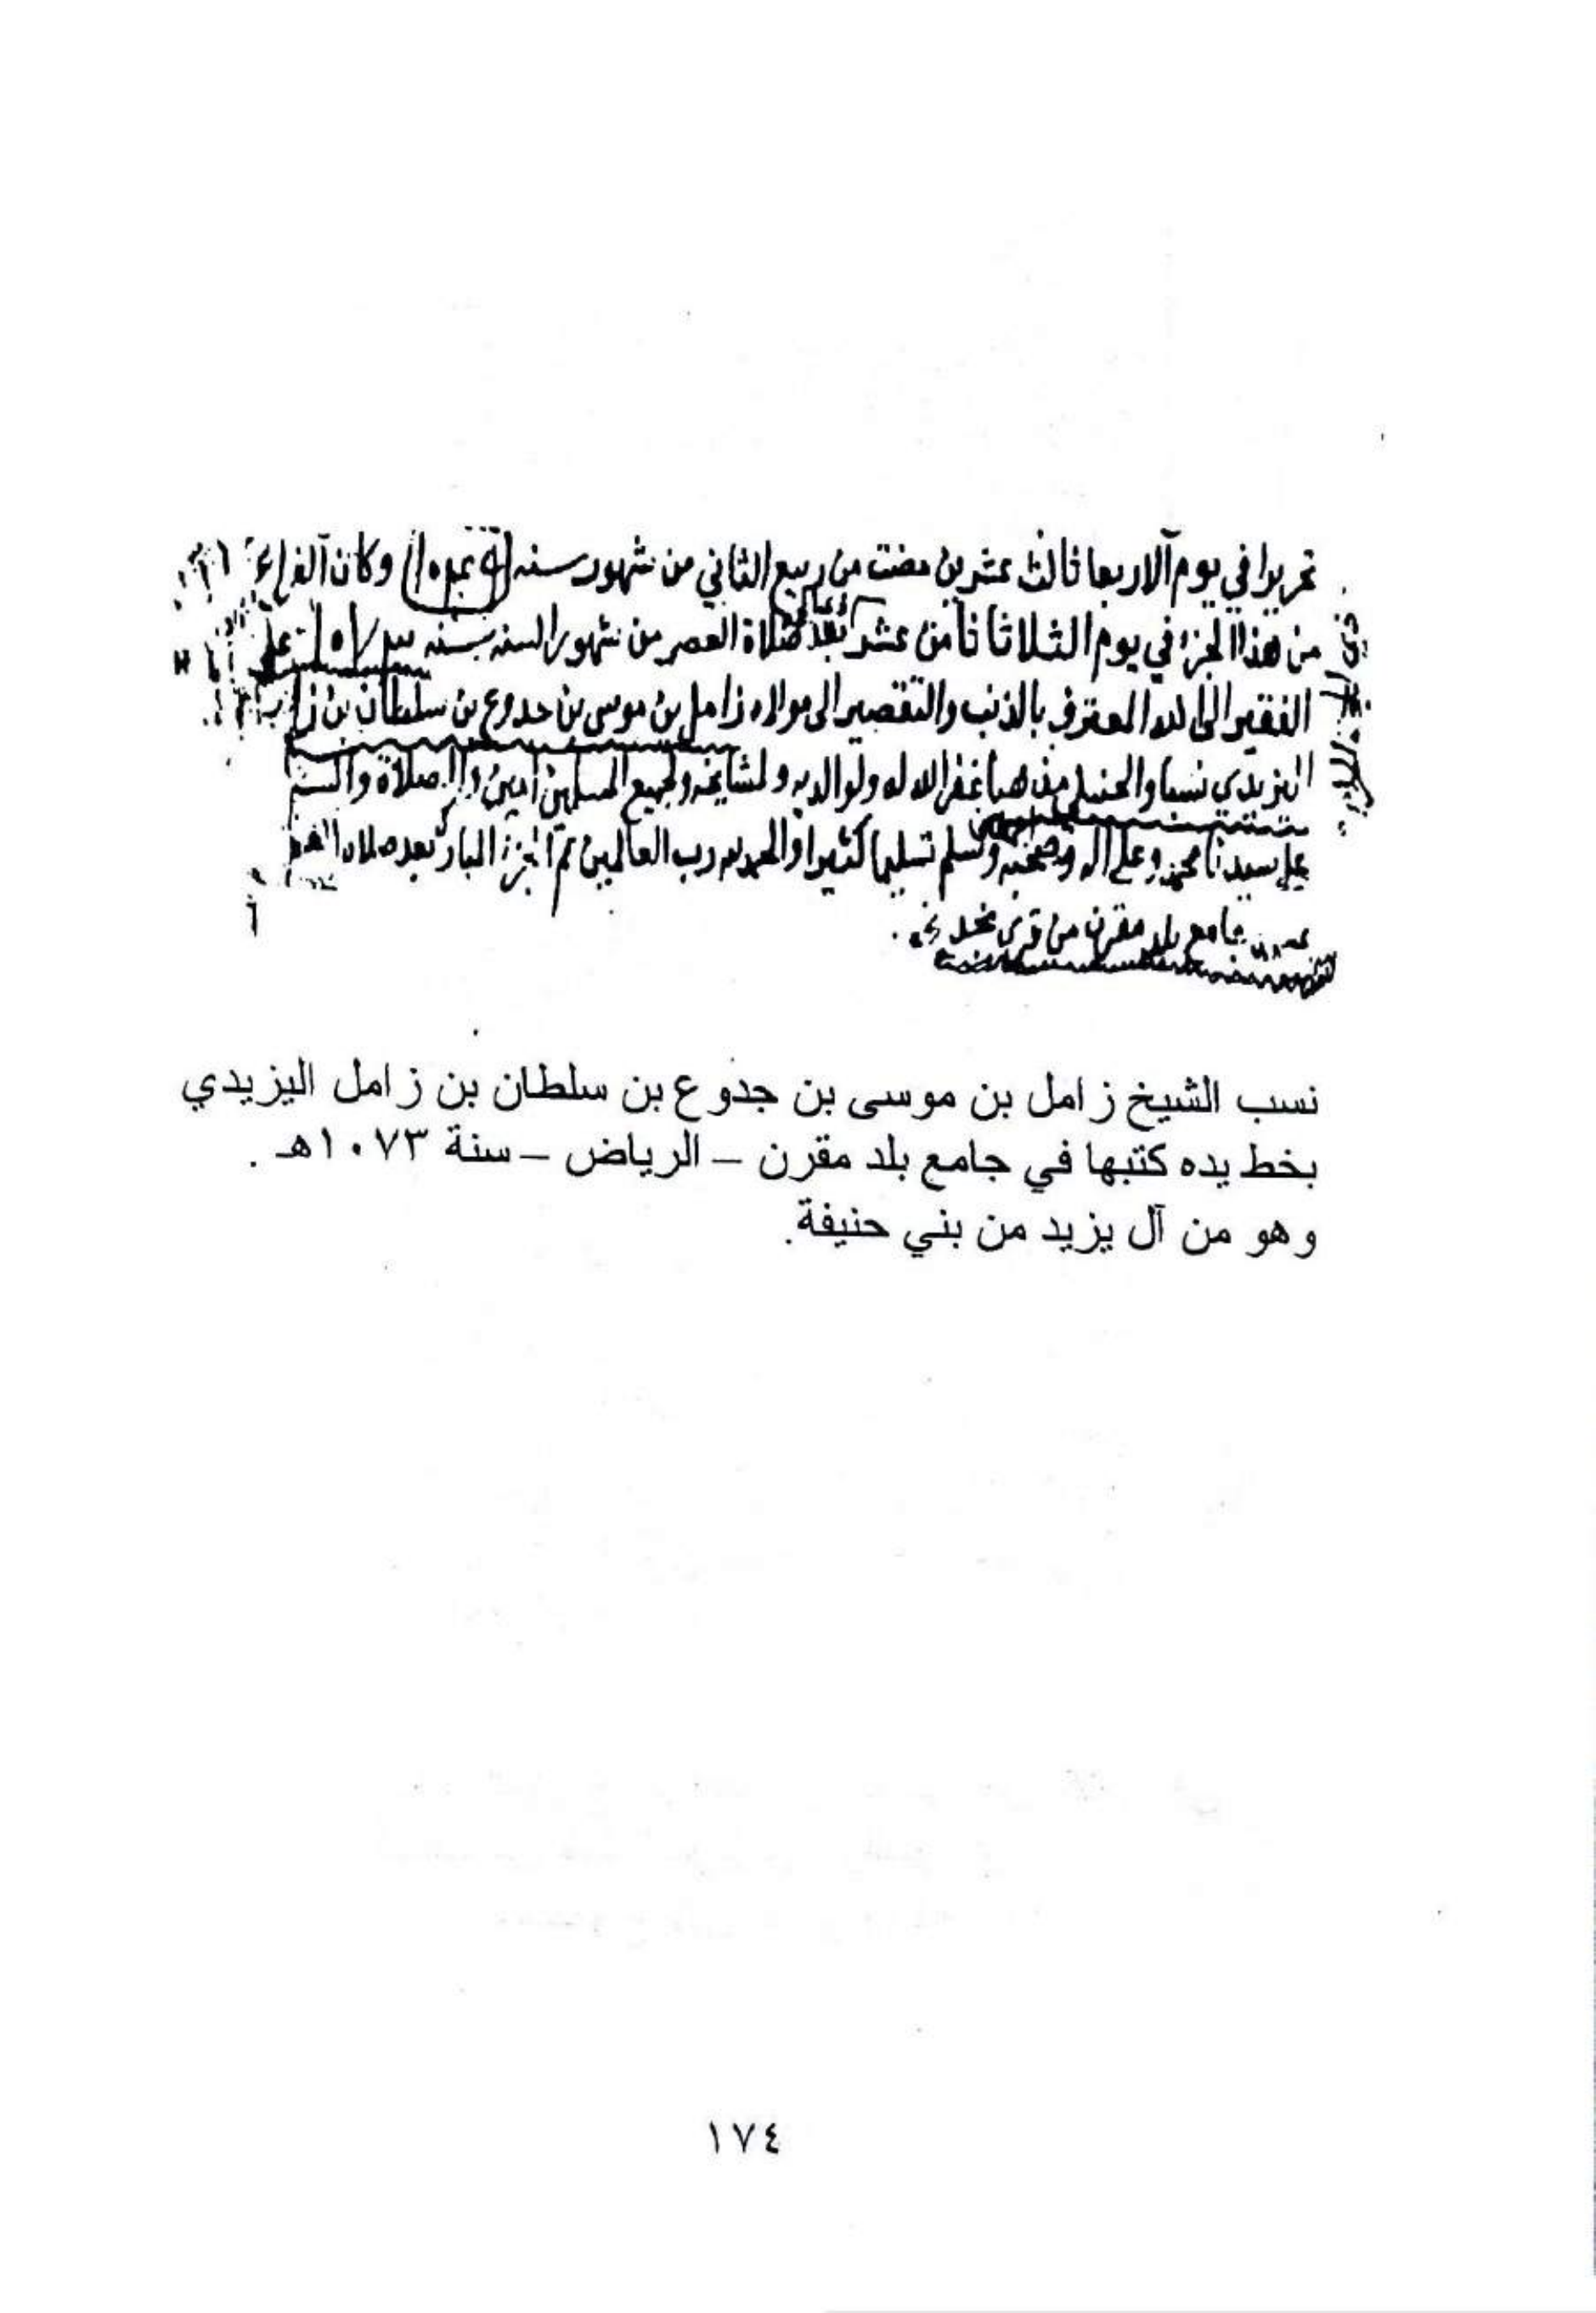 تحريرا في يوم الاربعا ثالث عشرين مضت من ربيع الثاني من شهور سنه وكان الفراغ
من هذا الجزء في يوم الثلاثا ثامن عشر بعد صلاة العصر من شهور السنه
الفقير الى الله المعترف بالذنب والتقصير الى مولاه زامل بن موسى بن جدوع بن سلطان بن زا
اليزيدي نسبا والحنبلي مذهبا غفر الله له ولوالديه ولمشايخه ولجميع المسلمين امين والصلاة والسلام
على سيدنا محمد وعلى اله وصحبه وسلم تسليما كثيرا والحمد لله رب العالمين تم الجزء المبارك بعد صلاة
جامع بلد مقرن من قرى نجد
نسب الشيخ زامل بن موسى بن جدوع بن سلطان بن زامل اليزيدي
بخط يده كتبها في جامع بلد مقرن – الرياض – سنة ١٠٧٣هـ .
وهو من آل يزيد من بني حنيفة.
١٧٤